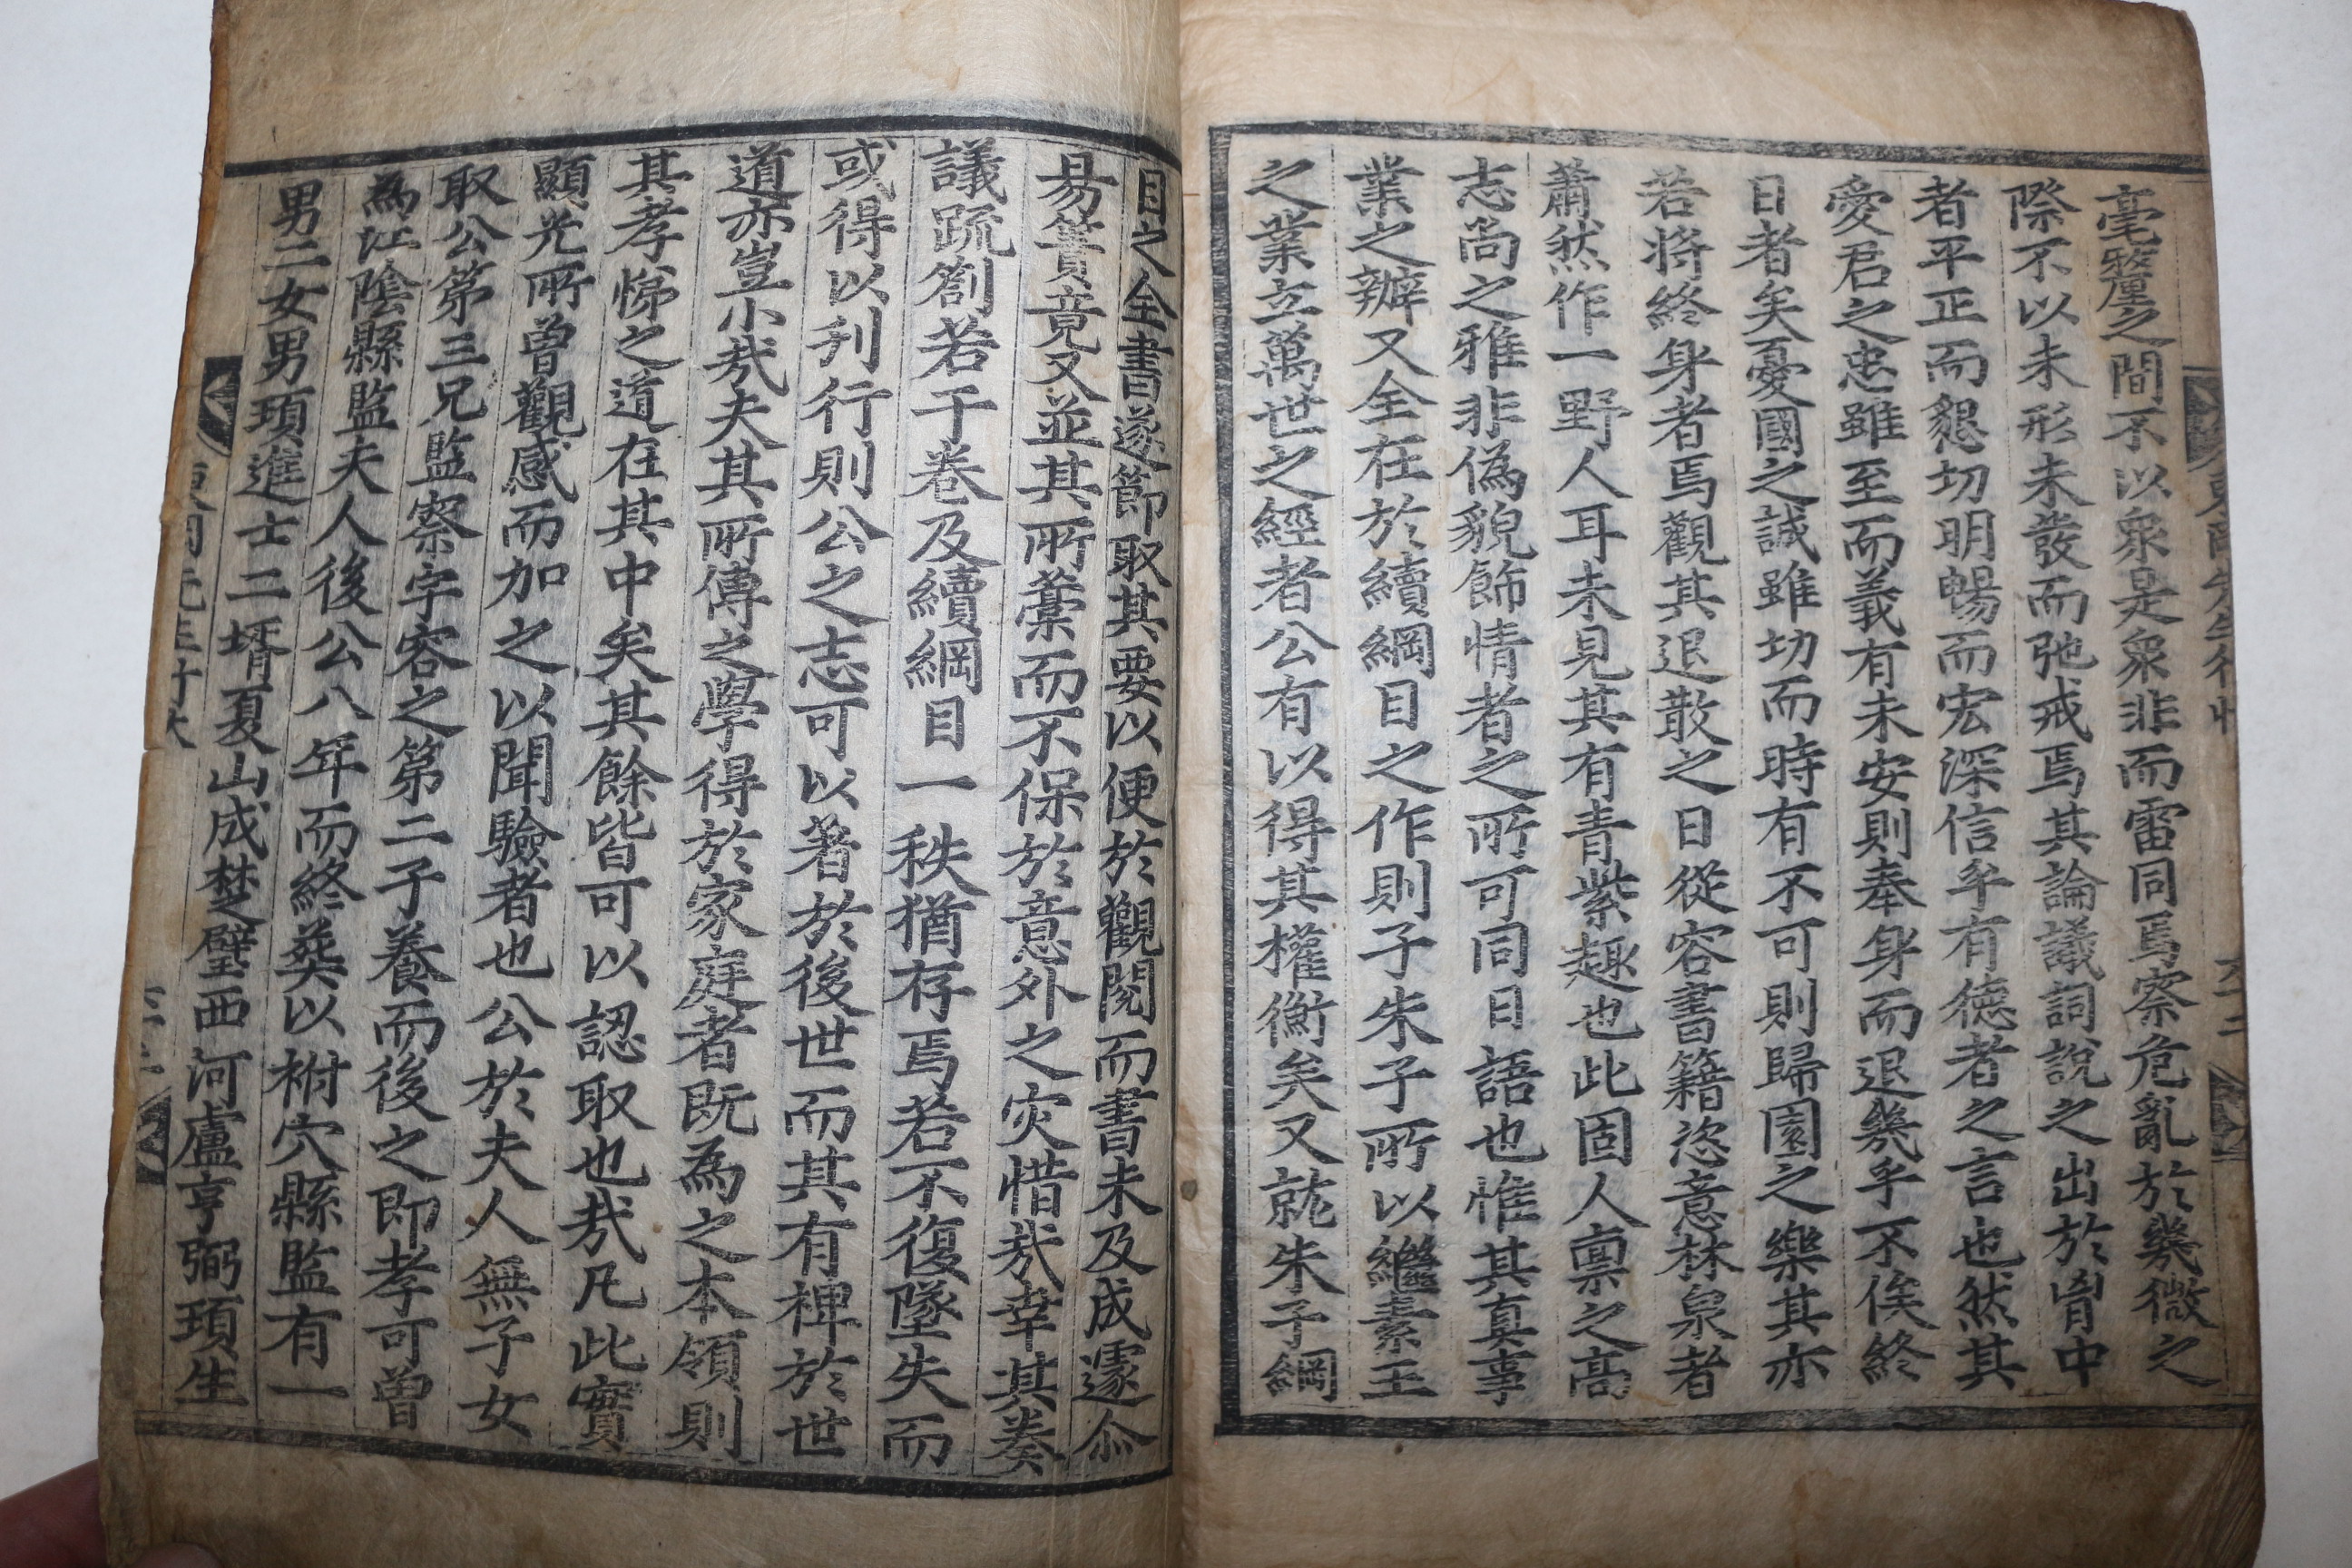 毫釐之間不以衆是衆非而雷同焉察危亂於幾微之
際不以未形未發而弛戒焉其論議詞說之出於胷中
者平正而懇切明暢而宏深信乎有德者之言也然其
愛君之忠雖至而義有未安則奉身而退幾乎不俟終
日者矣憂國之誠雖切而時有不可則歸園之樂其亦
若將終身者焉觀其退散之日從容書籍恣意林泉者
蕭然作一野人耳未見其有青紫趣也此固人禀之高
志尚之雅非偽貌飾情者之所可同日語也惟其真事
業之辦又全在於續綱目之作則子朱子所以繼素王
之業立萬世之經者公有以得其權衡矣又就朱子綱
目之全書遂節取其要以便於觀閱而書未及成遽尒
易簀竟又並其所藁而不保於意外之灾惜㢤幸其奏
議疏劄若干卷及續綱目一秩猶存焉若不復墜失而
或得以刋行則公之志可以著於後世而其有裨於世
道亦豈小㢤夫其所傳之學得於家庭者既為之本領則
其孝悌之道在其中矣其餘皆可以認取也㢤凡此實
顯光所曾觀感而加之以聞驗者也公於夫人無子女
取公第三兄監察宇容之第二子養而後之即孝可曾
為江陰縣監夫人後公八年而終葬以祔穴縣監有一
男二女男頊進士二壻夏山成楚璧西河盧亨弼頊生